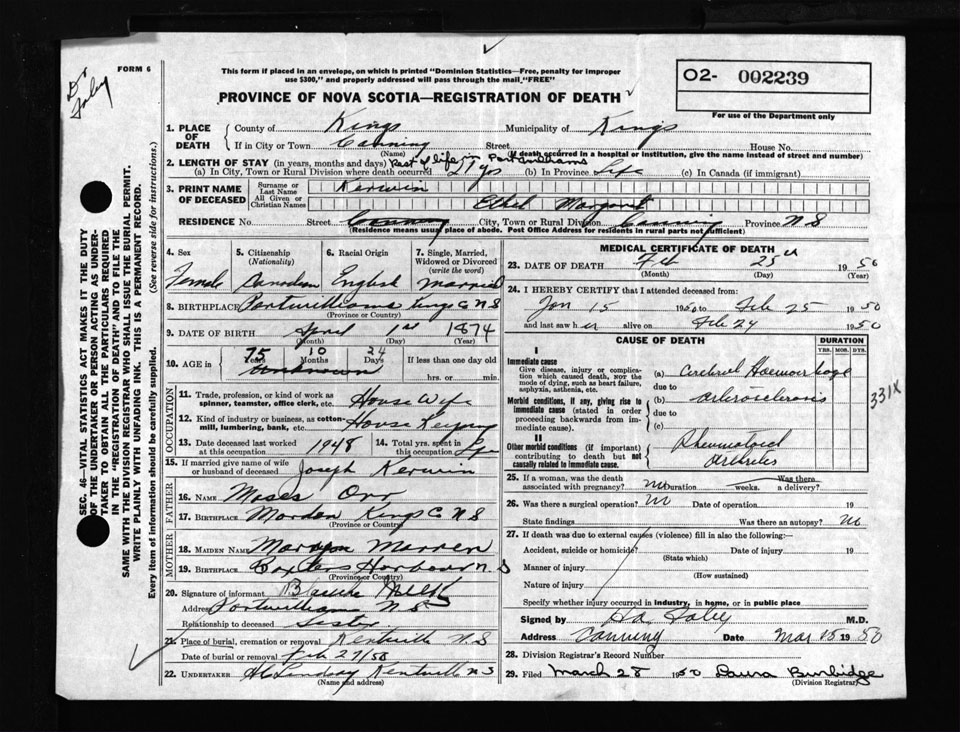 Dr Foley
FORM 6
This form if placed in an envelope, on which is printed "Dominion Statistics—Free, penalty for improper
use $300," and properly addressed will pass through the mail "FREE"
O2- 002239
For use of the Department only
PROVINCE OF NOVA SCOTIA—REGISTRATION OF DEATH
SEC. 46—VITAL STATISTICS ACT MAKES IT THE DUTY
OF THE UNDERTAKER OR PERSON ACTING AS UNDER-
TAKER TO OBTAIN ALL THE PARTICULARS REQUIRED
IN THE "REGISTRATION OF DEATH" AND TO FILE THE
SAME WITH THE DIVISION REGISTRAR WHO SHALL ISSUE THE BURIAL PERMIT.
WRITE PLAINLY WITH UNFADING INK. THIS IS A PERMANENT RECORD.
Every item of information should be carefully supplied. (See reverse side for instructions.)
1. PLACE OF DEATH County of Kings Municipality of Kings
If in City or Town Canning Street House No.
(Name) (If death occurred in a hospital or institution, give the name instead of street and number)
2. LENGTH OF STAY (in years, months and days) Rest of life in Portwilliams
(a) In City, Town or Rural Division where death occurred 27 yrs (b) In Province Life (c) In Canada (if immigrant)
3. PRINT NAME OF DECEASED Surname or Last Name Kerwin
All Given or Christian Names Ethel Margaret
RESIDENCE No. Street Canning City, Town or Rural Division Canning Province N.S
(Residence means usual place of abode. Post Office Address for residents in rural parts not sufficient)
4. Sex 5. Citizenship (Nationality) 6. Racial Origin 7. Single, Married, Widowed or Divorced (write the word)
Female Canadian English Married
8. BIRTHPLACE Portwilliams Kings C N S
(Province or Country)
9. DATE OF BIRTH April 1st 1874
(Month) (Day) (Year)
10. AGE in 75 Years 10 Months 24 Days If less than one day old
Unknown hrs. or min.
OCCUPATION
11. Trade, profession, or kind of work as spinner, teamster, office clerk, etc. House Wife
12. Kind of industry or business, as cotton-mill, lumbering, bank, etc. House Keeping
13. Date deceased last worked at this occupation 1948 14. Total yrs. spent in this occupation Life
15. If married give name of wife or husband of deceased Joseph Kerwin
FATHER
16. NAME Moses Orr
17. BIRTHPLACE Morden Kings C N S
(Province or Country)
MOTHER
18. MAIDEN NAME
19. BIRTHPLACE Baxters Harbour N S
(Province or Country)
20. Signature of informant Blanche
Address Portwilliams N S
Relationship to deceased Sister
21. Place of burial, cremation or removal Kentville N.S
Date of burial or removal Feb 27/50
22. UNDERTAKER H C Lindsay Kentville N S
(Name and address)
MEDICAL CERTIFICATE OF DEATH
23. DATE OF DEATH Feb 25th 1950
(Month) (Day) (Year)
24. I HEREBY CERTIFY that I attended deceased from:
Jan 15 1950 to Feb 25 1950
and last saw her alive on Feb 24 1950
CAUSE OF DEATH DURATION
YRS. MOS. DYS.
I
Immediate cause
Give disease, injury or complication which caused death, not the mode of dying, such as heart failure, asphyxia, asthenia, etc.
(a) Cerebral Haemorrhage
due to
Morbid conditions, if any, giving rise to immediate cause (stated in order proceeding backwards from immediate cause).
(b) arteriosclerosis
due to
(c)
331X
II
Other morbid conditions (if important) contributing to death but not causally related to immediate cause.
Rheumatoid
Arthritis
25. If a woman, was the death associated with pregnancy? no Duration weeks. Was there a delivery?
26. Was there a surgical operation? no Date of operation 19
State findings Was there an autopsy? no
27. If death was due to external causes (violence) fill in also the following:
Accident, suicide or homicide? Date of injury 19
(State which)
Manner of injury
(How sustained)
Nature of injury
Specify whether injury occurred in industry, in home, or in public place
Signed by Foley M.D.
Address Canning Date Mar 15 1950
28. Division Registrar's Record Number
29. Filed March 28 1950 Laura Burbidge
(Division Registrar)